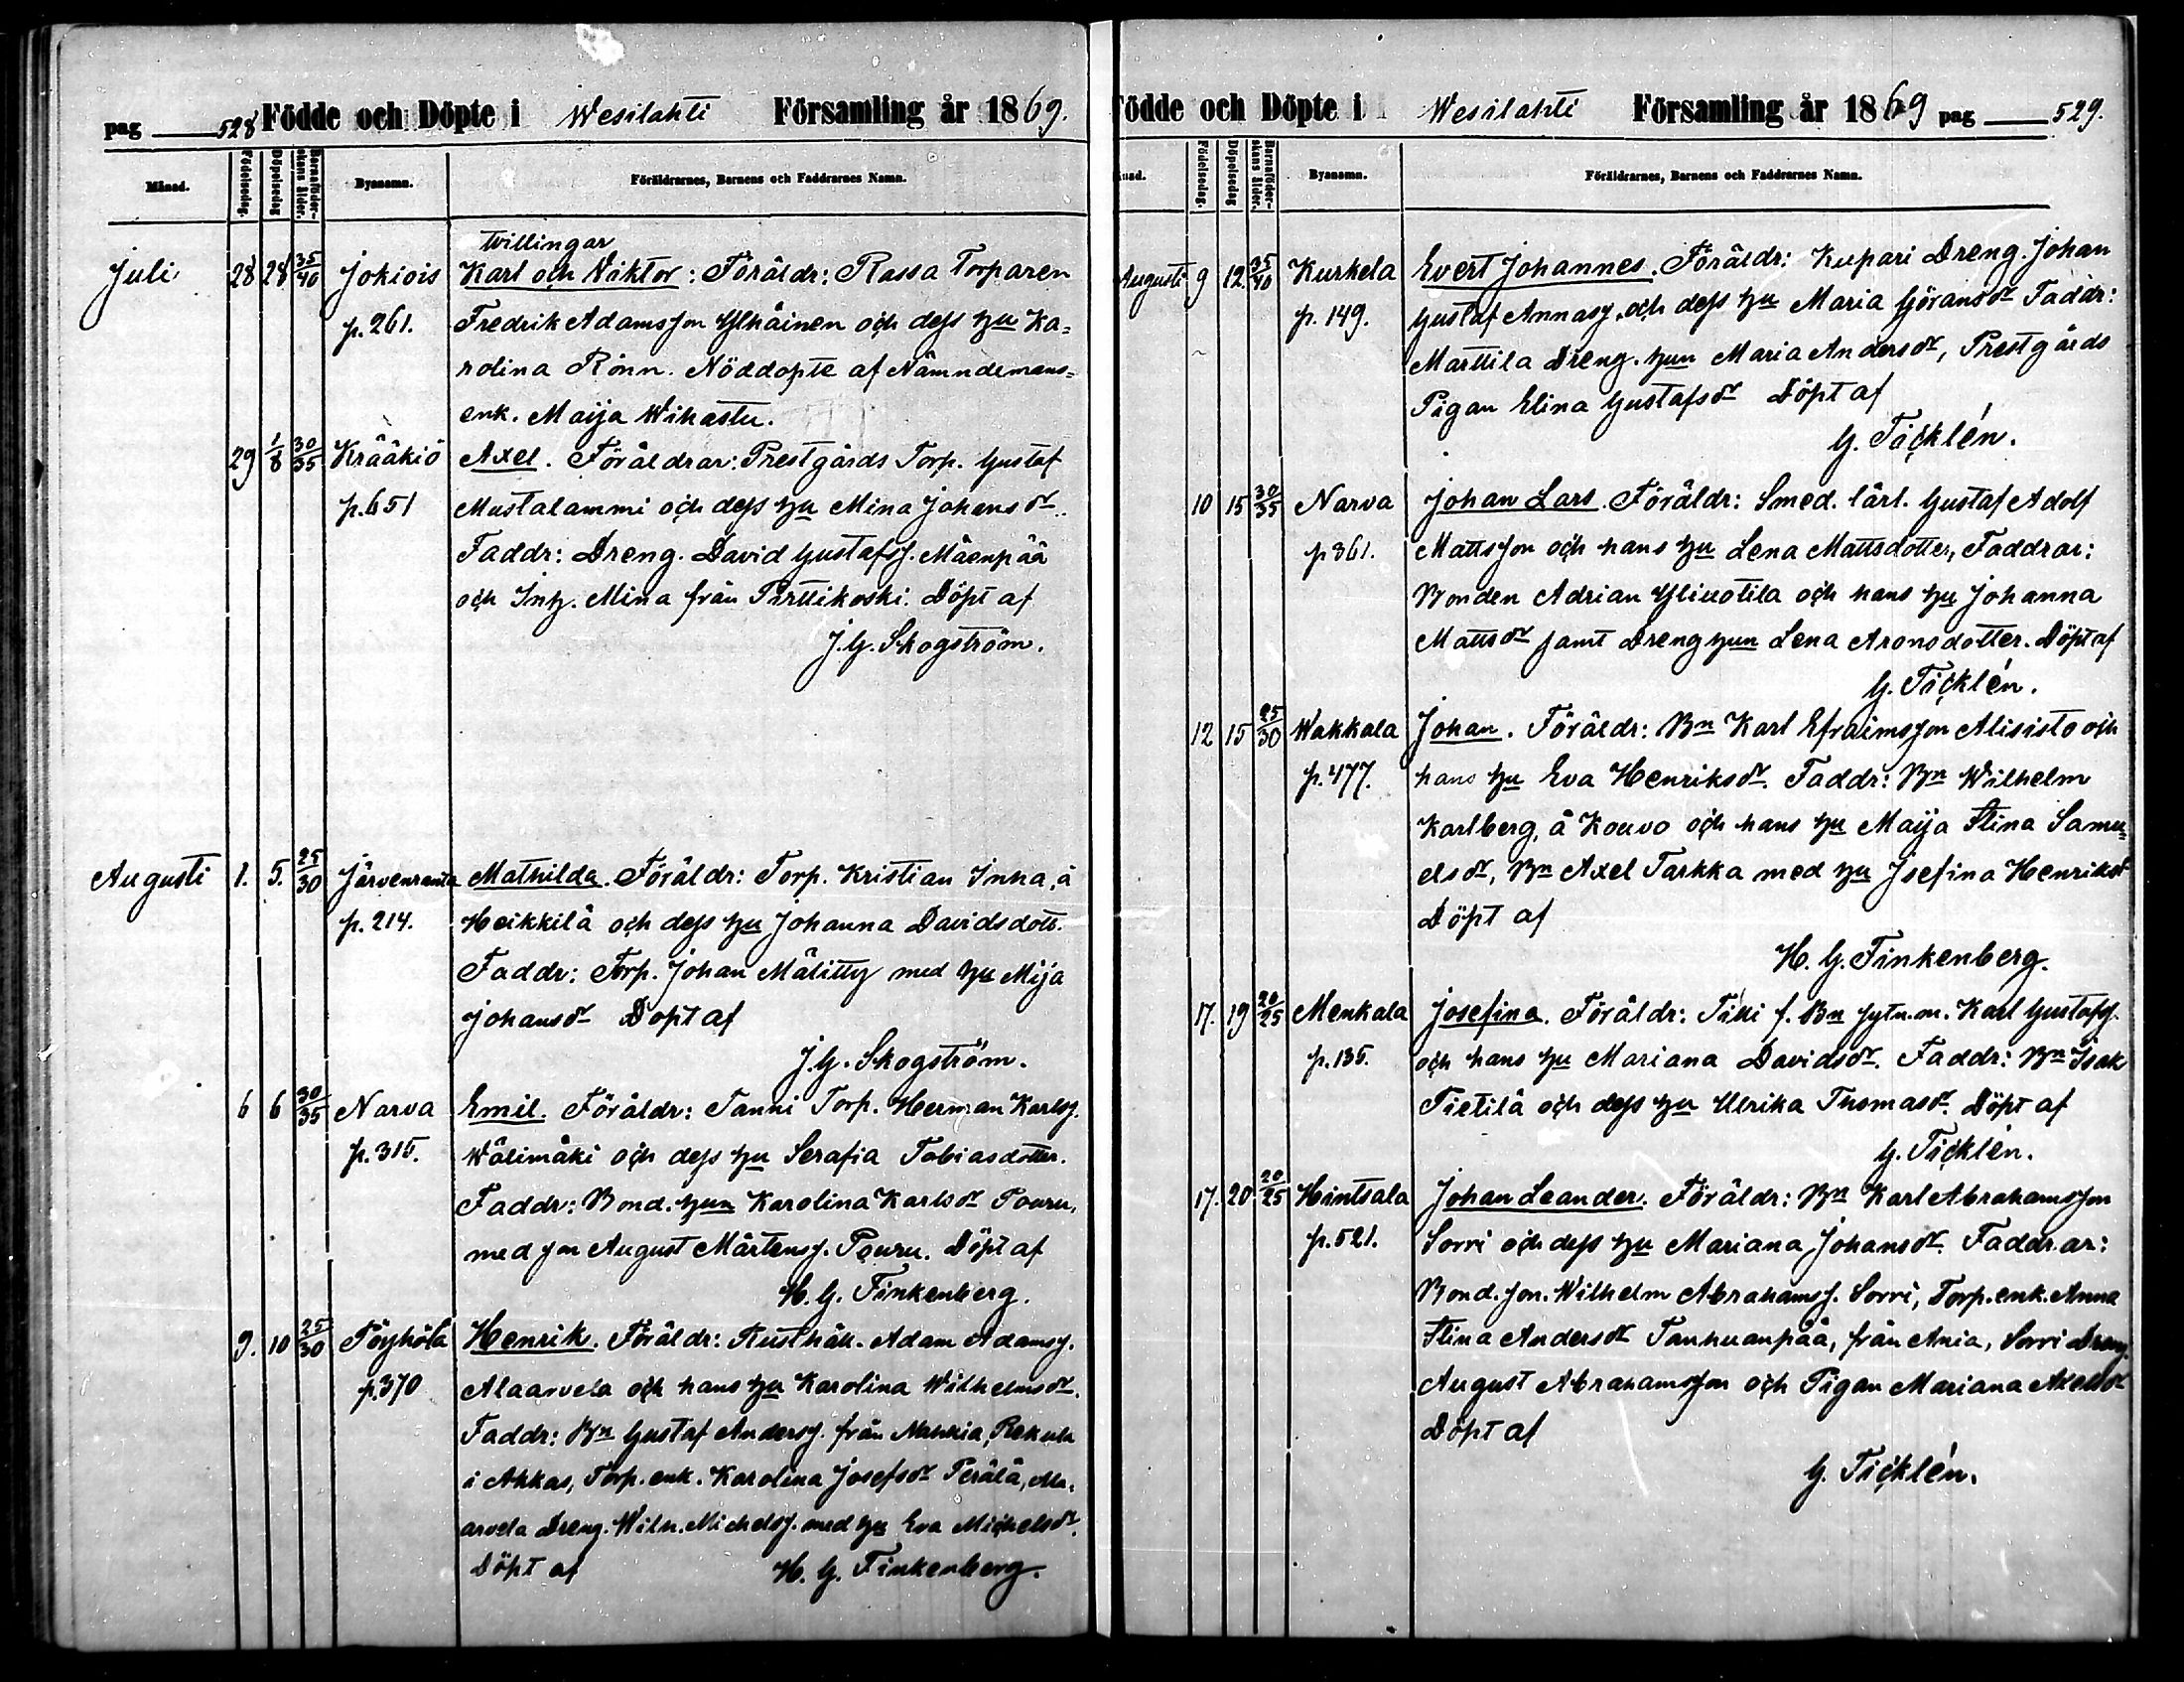 pag 528 Födde och Döpte i Wesilahti Församling år 1869.
Månad. Födelsedag. Döpelsedag Barnaföderskans ålder. Bynamn. Föräldrarnes, Barnens och Faddrarnes Namn.
tvillingar
Juli 28 28 35/40 Jokiois Karl och Viktor: Föräldr: Rassa Torparen
p. 261. Fredrik Adamsson Ylhäinen och dess hu Ka=
rolina Rönn. Nöddöpte af Nämndemans=
enk. Maija Wihastu.
29 1/8 30/35 Krääkiö Axel. Föräldrar: Prestgårds Torp. Gustaf
p. 651 Mustalammi och dess hu Mina Johansdr.
Faddr: Dreng. David Gustafss. Mäenpää
och Inh. Mina från Parttikoski. Döpt af
J. G. Skogström.
Augusti 1. 5. 25/30 Järvenranta Mathilda. Föräldr: Torp. Kristian Inna, å
p. 214. Heikkilä och dess hu Johanna Davidsdott.
Faddr: Torp. Johan Mälitty med hu Mija
Johansdr Döpt af
J. G. Skogström.
6 6 30/35 Narva Emil. Föräldr: Tanni Torp. Herman Karlss.
p. 315. Wälimäki och dess hu Serafia Tobiasdotter.
Faddr: Bond. hun Karolina Karlsdr Pouru,
med son August Mårtenss. Pouru. Döpt af
H. G. Finkenberg.
9. 10 25/30 Pöyhölä Henrik. Föräldr: Rusthåll. Adam Adamss.
p. 370 Alaarvela och hans hu Karolina Wilhelmsdr.
Faddr: Bn Gustaf Anderss. från
i Akkas, Torp. enk. Karolina Josefsdr Perälä, Ala=
arvela Dreng. Wilh. Michelss. med hu Eva Michelsdr.
Döpt af H. G. Finkenberg.
Födde och Döpte i Wesilahti Församling år 1869 pag 529.
Månad. Födelsedag. Döpelsedag Barnaföderskans ålder. Bynamn. Föräldrarnes, Barnens och Faddrarnes Namn.
Augusti 9 12. 35/40 Kurkela Evert Johannes. Föräldr: Kupari Dreng. Johan
p. 149. Gustaf Annass. och dess hu Maria Göransdr Faddr:
Marttila Dreng. hun Maria Andersdr, Prestgårds
Pigan Elina Gustafsdr Döpt af
G. Täcklén.
10 15 30/35 Narva Johan Lars. Föräldr: Smed. lärl. Gustaf Adolf
p 361. Mattsson och hans hu Lena Mattsdotter, Faddrar:
Bonden Adrian Yliuotila och hans hu Johanna
Mattsdr samt Dreng hun Lena Aronsdotter. Döpt af
G. Täcklén.
12 15 25/30 Wakkala Johan. Föräldr: Bn Karl Efraimsson Alisisto och
p. 477. hans hu Eva Henriksdr. Faddr: Bn Wilhelm
Karlberg, å Kouvo och hans hu Maija Stina Samu=
elsdr, Bn Axel Tarkka med hu Josefina Henriksdr
Döpt af
H. G. Finkenberg.
17. 19 20/25 Menkala Josefina. Föräldr: f. Bn sytn. m. Karl Gustafss.
p. 135. och hans hu Mariana Davidsdr. Faddr: Bn Isak
Pietilä och dess hu Ulrika Thomasdr. Döpt af
G. Täcklén.
17. 20 20/25 Hintsala Johan Leander. Föräldr: Bn Karl Abrahamsson
p. 521. Sorri och dess hu Mariana Johansdr. Faddrar:
Bond. son. Wilhelm Abrahamss. Sorri, Torp. enk. Anna
Stina Andersdr Tanhuanpää, från Ania, Sorri Dreng
August Abrahamsson och Pigan Mariana Axelsdr
Döpt af
G. Täcklén.